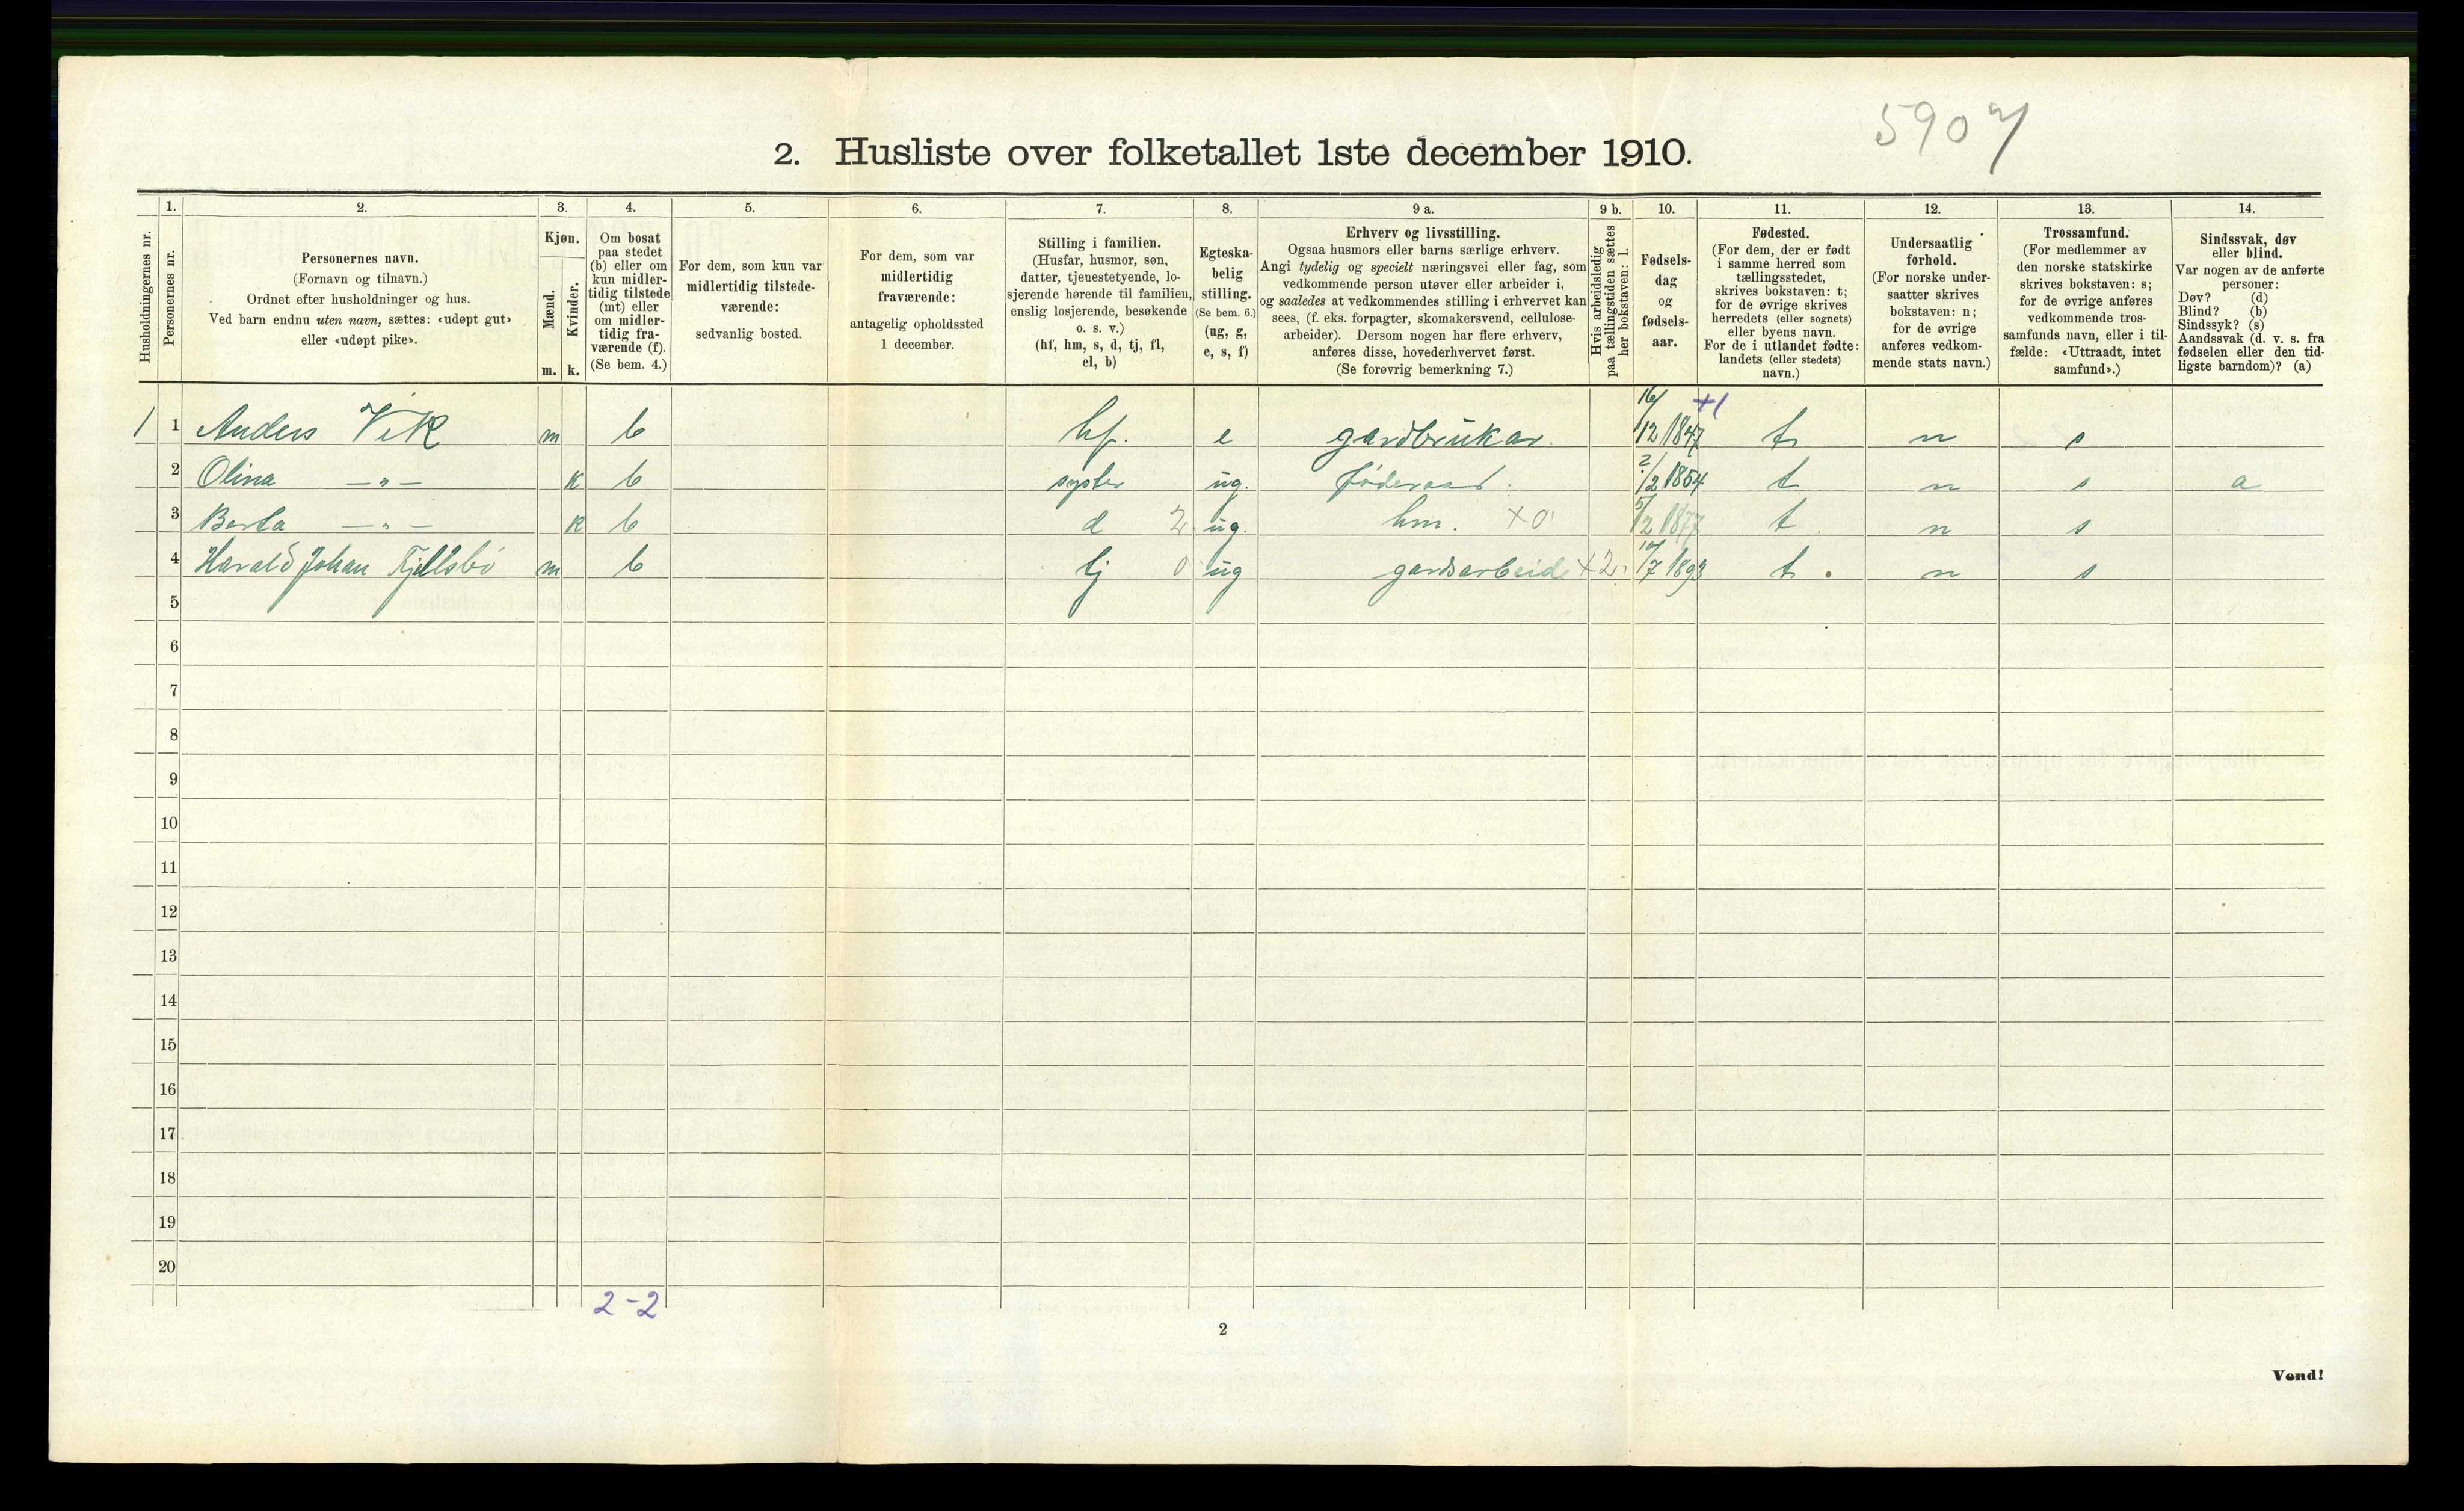 5907
2. Husliste over folketallet 1ste december 1910.
Husholdningernes nr.
1.
Personernes nr.
2.
Personernes navn.
(Fornavn og tilnavn.)
Ordnet efter husholdninger og hus.
Ved barn endnu uten navn, sættes: «udøpt gut»
eller «udøpt pike».
3.
Kjøn.
Mænd.
Kvinder.
m. k.
4.
Om bosat
paa stedet
(b) eller om
kun midler-
tidig tilstede
(mt) eller
om midler-
tidig fra-
værende (f).
(Se bem. 4.)
5.
For dem, som kun var
midlertidig tilstede-
værende:
sedvanlig bosted.
6.
For dem, som var
midlertidig
fraværende:
antagelig opholdssted
1 december.
7.
Stilling i familien.
(Husfar, husmor, søn,
datter, tjenestetyende, lo-
sjerende hørende til familien,
enslig losjerende, besøkende
o. s. v.)
(hf, hm, s, d, tj, fl,
el, b)
8.
Egteska-
belig
stilling.
(Se bem. 6.)
(ug, g,
e, s, f)
9 a.
Erhverv og livsstilling.
Ogsaa husmors eller barns særlige erhverv.
Angi tydelig og specielt næringsvei eller fag, som
vedkommende person utøver eller arbeider i,
og saaledes at vedkommendes stilling i erhvervet kan
sees, (f. eks. forpagter, skomakersvend, cellulose-
arbeider). Dersom nogen har flere erhverv,
anføres disse, hovederhvervet først.
(Se forøvrig bemerkning 7.)
9 b.
Hvis arbeidsledig
paa tællingstiden sættes
her bokstaven: l.
10.
Fødsels-
dag
og
fødsels-
aar.
11.
Fødested.
(For dem, der er født
i samme herred som
tællingsstedet,
skrives bokstaven: t;
for de øvrige skrives
herredets (eller sognets)
eller byens navn.
For de i utlandet fødte:
landets (eller stedets)
navn.)
12.
Undersaatlig
forhold.
(For norske under-
saatter skrives
bokstaven: n;
for de øvrige
anføres vedkom-
mende stats navn.)
13.
Trossamfund.
(For medlemmer av
den norske statskirke
skrives bokstaven: s;
for de øvrige anføres
vedkommende tros-
samfunds navn, eller i til-
fælde: «Uttraadt, intet
samfund».)
14.
Sindssvak, døv
eller blind.
Var nogen av de anførte
personer:
Døv? (d)
Blind? (b)
Sindssyk? (s)
Aandssvak (d. v. s. fra
fødselen eller den tid-
ligste barndom)? (a)
1 1 Anders Vik m b hf. e gardbrukar. 16/12 1847 +1 t n s
2 Olina —„— k b syster ug. føderaad. 2/2 1854 t n s a
3 Berta —„— k b d 2 ug. hm. +0 5/2 1877 t n s
4 Harald Johan Fjellsbö m b tj 0 ug gardsarbeid +2 10/7 1893 t. n s
5
6
7
8
9
10
11
12
13
14
15
16
17
18
19
20
2-2
2
Vend!